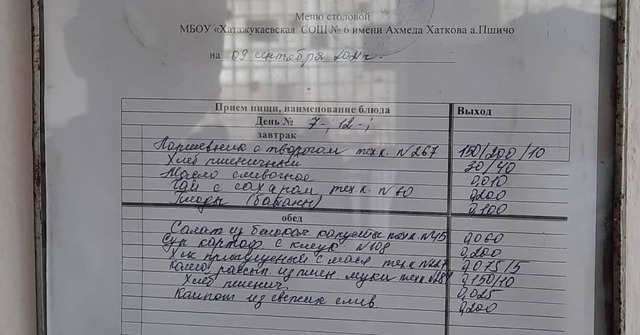 Меню столовой
МБОУ «Хатажукаевская СОШ № 6 имени Ахмеда Хаткова а.Пшичо
на 09 сентября 2021г.
Прием пищи, наименование блюда Выход
День № 7-, 12-;
завтрак
с творогом тех.к. №267 150/200/10
Хлеб пшеничный 30/40
Масло сливочное 0,010
Чай с сахаром тех.к. №60 0,200
Плоды (бананы) 0,100
обед
Салат из белокач капусты тех.к. №45 0,060
Суп картоф. с клецк №108 0,200
с масл тех.к. 0,075/5
рассып. из пшен 0,150/10
Хлеб пшенич. 0,025
Компот из свежих слив 0,200